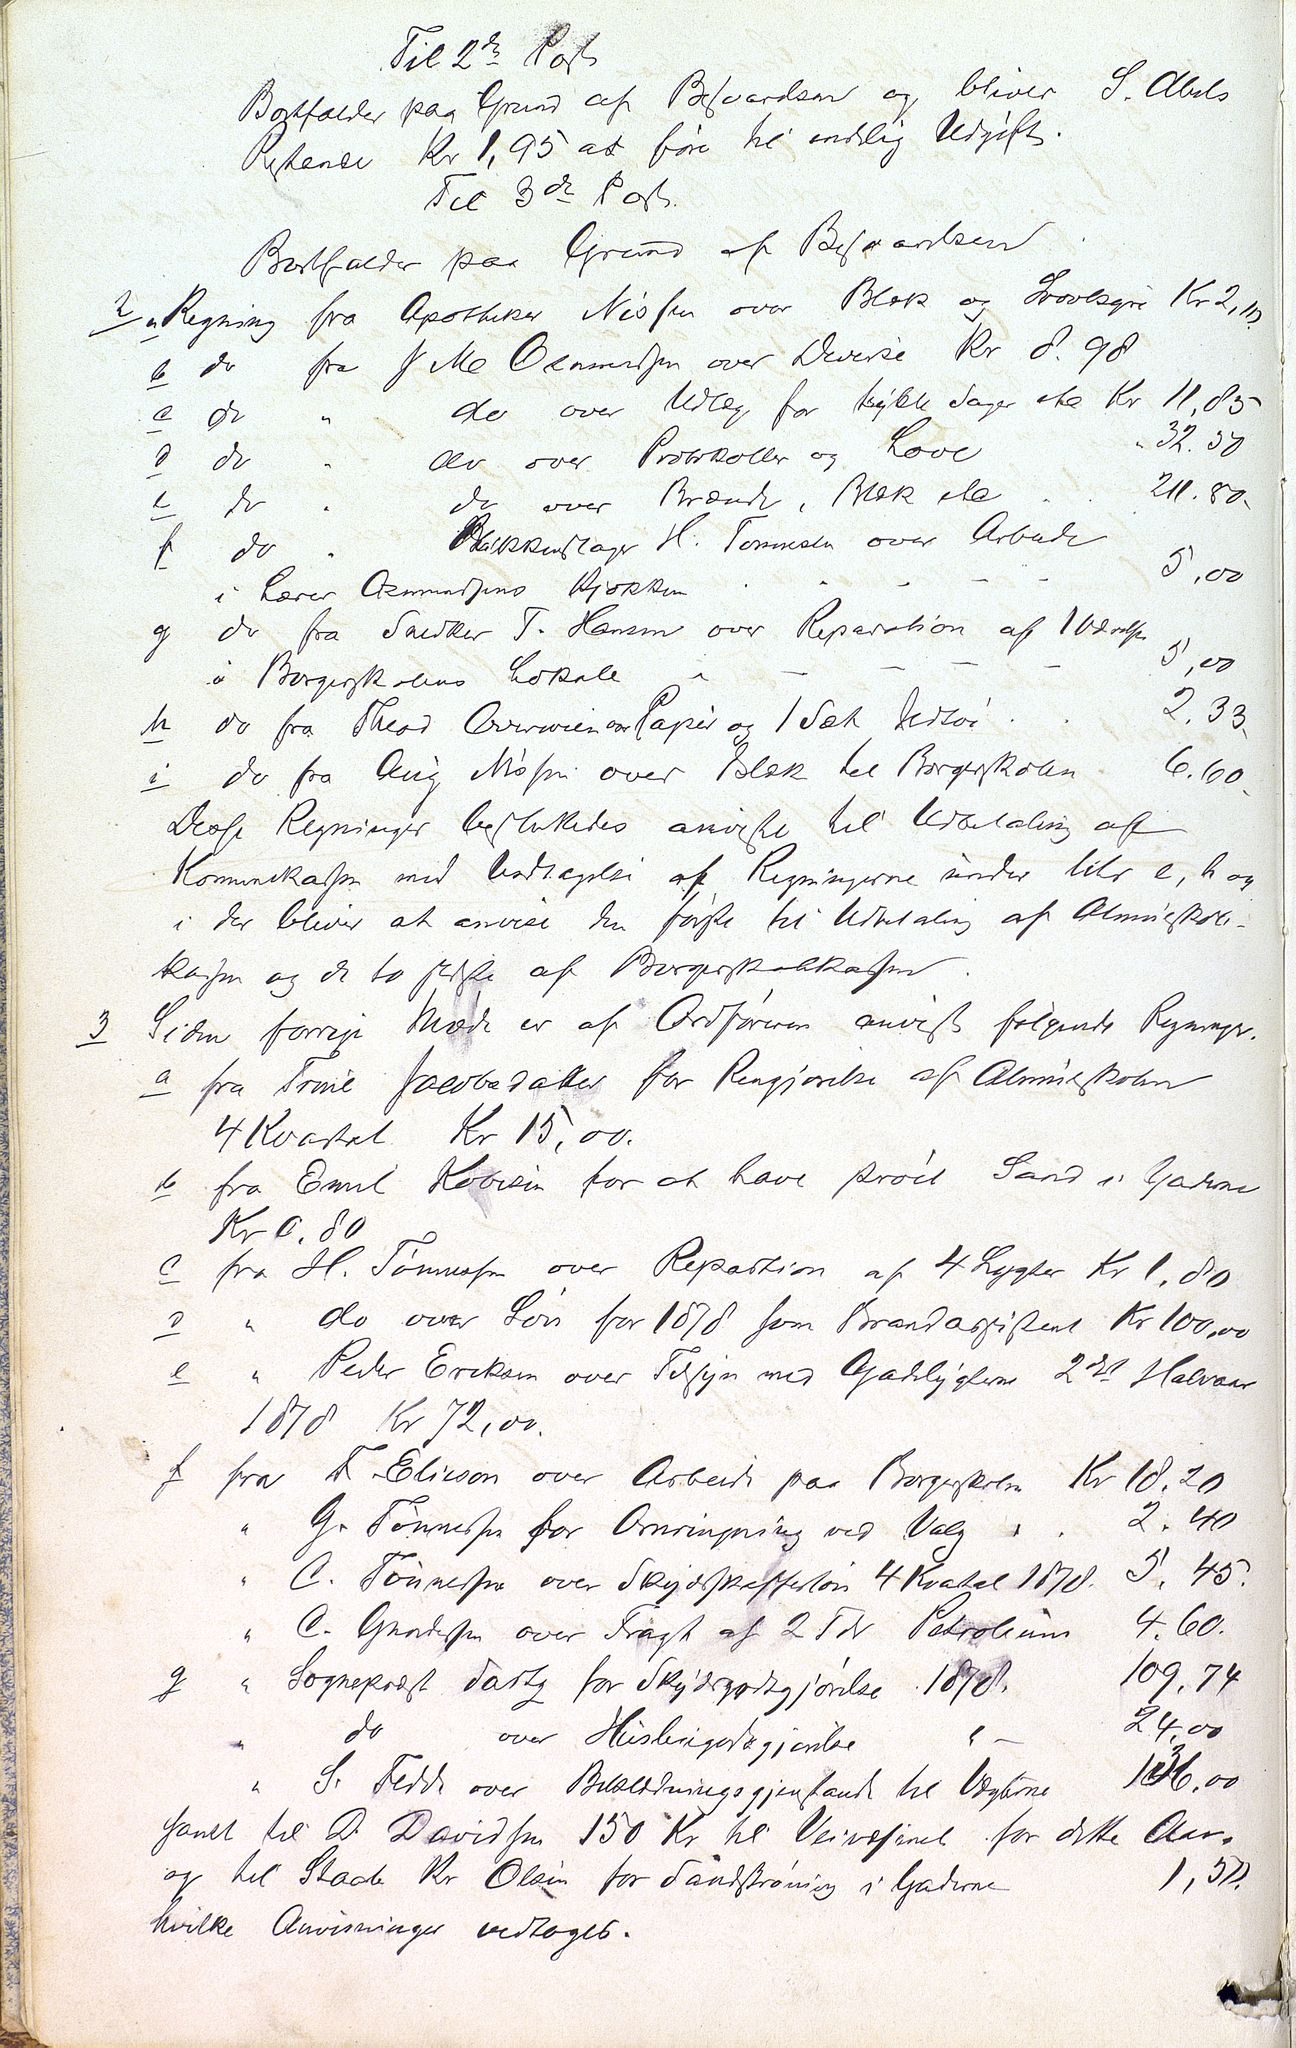 Til 2den Post
Bortfalder paa Grund af Besvarelsen og bliver S. Abels
Restance Kr 1,95 at føre til endelig Udgift.
Til 3de Post.
Bortfalder paa Grund af Besvarelsen
2 a Regning fra Apotheker Nissen over Blæk og Svovlsyre Kr 2,10
b do fra J M Osmundsen over Diverse Kr 8.98
c do " do over Udlæg for trykte Sager etc Kr 11,85
d do " do over Protokoller og Love " 32.50
e do " do over Brænde, Blæk etc 211.80
f do " Blikkenslager H. Tønnesen over Arbeide
i Lærer Osmundsens Kjøkken 5,00
g do fra Snedker T. Hansen over Reparation af 1 Værelse
i Borgerskolens Lokale 5,00
h do fra Theod Overwien over Papir og 1 Sæk 2.33
i do fra Aug Nissen over Blæk til Borgerskolen 6.60
Disse Regninger besluttedes anviste til Udbetaling af
Kommunekassen med Undtagelse af Regningerne under litr e, h og
i der bliver at anvise den første til Udbetaling af Almueskole-
kassen og de to sidste af Borgerskolekassen.
3 Siden forrige Møde er af Ordføreren anvist følgende Regninger.
a fra Trine Jacobsdatter for Rengjørelse af Almueskolen
4 Kvartal Kr 15,00.
b fra Emil for at have strøet Sand i Gaderne
Kr 0.80
c fra H. Tønnessen over Repartion af 4 Lygter Kr 1,80
d " do over Løn for 1878 som Brandassistent Kr 100,00
e " Peder Eriksen over Tilsyn med Gadelygterne 2det Halvaar
1878 Kr 72,00.
f fra F. Elieson over Arbeide paa Borgerskolen Kr 18.20
" G. Tønnessen for Omringning ved Valg " . 2.40
" C. Tønnessen over Skydsskafferløn 4 Kvatal 1878. 5.45.
" C. Gundersen over Fragt af 2 Tdr Petroleum 4.60.
g " Sogneprest for Skydsgodtgjørelse 1878. 109,74
" do over Husleiegodtgjørelse " — 24,00
" S. Fedde over Beklædningsgjenstande til Vægterne 136,00
samt til D. Davidsen 150 Kr til Veivæsenet for dette Aar.
og til Staale Kr Olsen for Sandstrøning i Gaderne 1,50.
hvilke Anvisninger vedtoges.